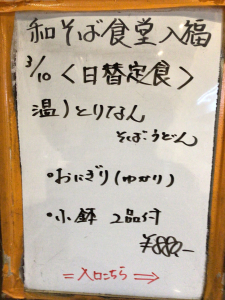 和そば食堂入福
3/10 <日替定食>
温)とりなん
そば・うどん
・おにぎり(ゆかり)
・小鉢 2品付
¥880-
=入口こちら⇒